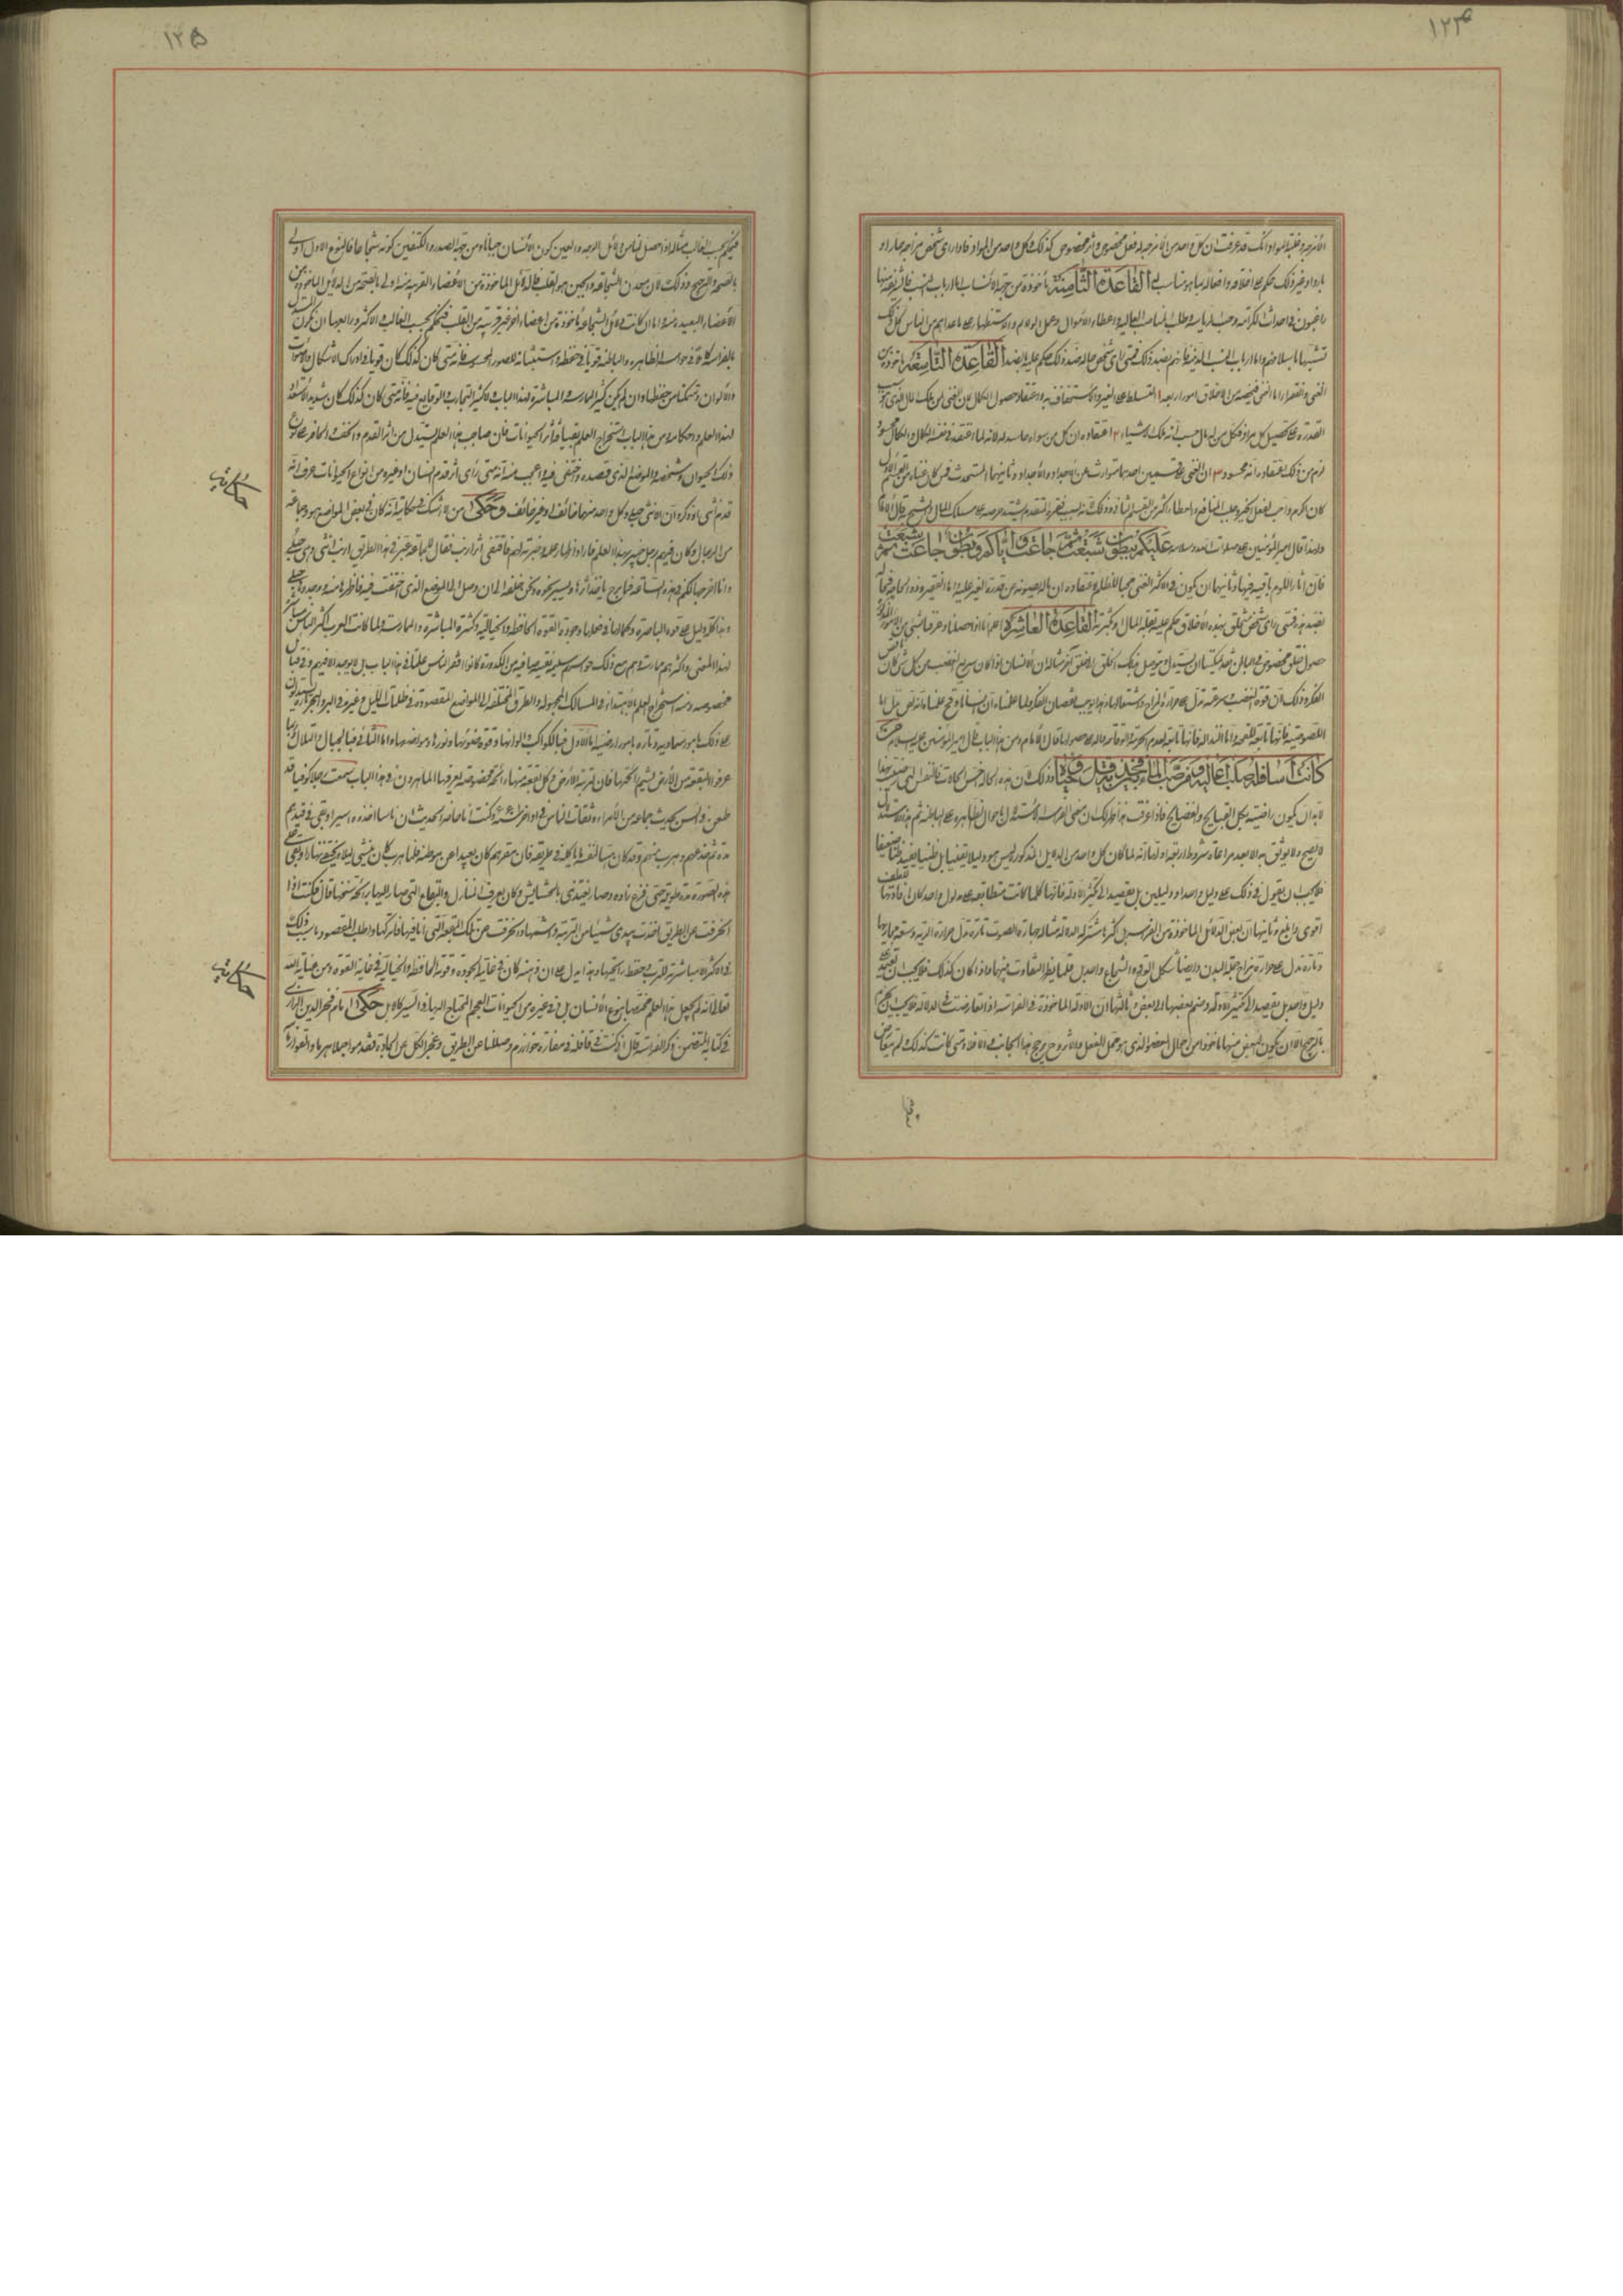 ١٢٤
الأمزجة وغلبة المواد انك قد عرفت ان كل واحد من الأمزجة له فعل مخصوص واثر مخصوص كذلك وكل واحد من المواد فاذا رأى شخص مزاجه حار او
بارد او غير ذلك حكم على اخلاقه وافعاله بما يناسب القاعدة الثامنة مأخوذة من جهة الأنساب اما ارباب النسب الشريفة فانهم
راغبون في احداث الكرامة وحب الرياسة وطلب المناصب العالية واعطاء الأموال
تشبها باسلافهم واما ارباب النسب الدنية فانهم بضد ذلك فمتى رأى شخص حاله ضد ذلك حكم عليه بالضد القاعدة التاسعة مأخوذة من
الغنى والفقر اما الغنى فيخصه من الأخلاق امور اربعة ١ التسلط على الغير والأستخفاف به واعتقاد حصول الكمال لان الغنى
القدرة على تحصيل كل مراد فكل من له مال حسب انه ملك الاشياء ٢ اعتقاده ان كل من سواه حاسد له لانه لما اعتقد في نفسه الكمال والكمال محسود
لزم من ذلك اعتقاده انه محسود ٣ ان الغنى على قسمين احدهما متوارث عن الأجداد وثانيهما المستحدث فمن كان غناه من القسم الأول
كان اكرم واحب لفعل الخير وطلب المنافع والعطاء اكثر من القسم الثاني وذلك
ولهذا قال امير المؤمنين عليه صلوات الله وسلامه عليكم ببطون شبعت ثم جاعت واياكم وبطون جاعت ثم شبعت
فان آثار اللؤم باقية فيها وثانيها ان يكون في الأكثر الغنى محبا للظلم لاعتقاده ان ماله يصونه عن قدرة الغير عليه اما الفقير
بضد هذه فمتى رأى شخص تخلق بهذه الأخلاق حكم عليه بقلة المال او كثرته القاعدة العاشرة
حصول خلق مخصوص في الباطن فقد يمكننا ان نستدل ونتوصل بذلك الخلق الى خلق آخر مثاله ان الأنسان اذا كان سريع الغضب من كل شئ كان ناقص
الفكر وذلك لأن قوة الغضب وسرعته تدل على حرارة المزاج واشتعالها وهذا يوجب نقصان الفكر
اللصوصية فانها تابعة للقحة واما النذالة فانها تابعة لعدم الحرية قال الأمام ومن هذا الباب قال امير المؤمنين عليه سلام من
كانت أسافله صلبا عاليه وفرصب الماء
لابد ان يكون راضيا بكل القبايح والفضايح فاذا عرفت هذا ظهر لك ان معنى الفراسة الأستدلال بالأحوال الظاهرة على الباطنة ثم هذا الاستدلال
لا يصح ولا يوثق به الا بعد مراعاة شروط اربعة اولها انه لما كان كل واحد من الدلايل المذكورة ليس هو دليلا يقينيا بل ظنيا يفيد ظنا ضعيفا
فلا يجب ان يعول في ذلك على دليل واحد او دليلين بل يقصد الى تكثير الأدلة فانها كلما كانت متطابقة على مدلول واحد كان افادتها للظن
اقوى وابلغ وثانيها ان بعض الدلائل المأخوذة من الفراسة مشتركة الدلالة مثاله جهارة الصوت تارة تدل على حرارة الرية وسعة مجاريها
وتارة تدل على حرارة مزاج جملة البدن وايضا شكل القوي والشجاع واحد بل قلما يظهر التفاوت بينهما واذا كان كذلك فلا يجب ان يعتمد على
دليل واحد بل يقصد الى تكثير الأدلة وضم بعضها الى بعض وثالثها ان الأدلة المأخوذة في الفراسة اذا تعارضت في الدلالة فلا يجب ان يحكم
بالترجيح الا ان يكون البعض منها مأخوذا من احوال العضو الذي هو محل للفعل
١٢٥
فيحكم بحسب الغالب مثاله اذا حصل لنا من دلائل الوجه والعين كون الأنسان جبانا ومن جهة الصدر والكتفين كونه شجاعا فالنوع الاول اولى
بالصحة والترجيح وذلك لان معدن الشجاعة والجبن هو القلب فالدلائل المأخوذة من الأعضاء القريبة منه اولى بالصحة من الدلايل المأخوذة من
الأعضاء البعيدة منه واما ان كانت دلائل الشجاعة مأخوذة من اعضاء اخر غير قريبة من القلب فيحكم بحسب الغالب والأكثر ورابعها ان يكون المستدل
بالفراسة كاملا في حواسه الظاهرة والباطنة قويا في حفظه واستثباته للصور المحسوسة فانه متى كان كذلك كان قويا في ادراك الاشكال والأصوات
والألوان ومتمكنا من حفظها وان يكون كثير الممارسة والمباشرة لهذا الباب وكثير التجارب والوقايع فيه فانه متى كان كذلك كان شديد الأستعداد
لهذا العلم واحكامه ومن هذا الباب استخراج العلم بقيافة اثر الحيوانات فان صاحب هذا العلم يستدل من اثر القدم والخف والحافر على لون
ذلك الحيوان وشخصه والموضع الذي قصده واختفى فيه واعجب منه انه متى رأى اثر قدم انسان او غيره من انواع الحيوانات عرف انه
قدم انثى او ذكر وان الانثى حبلى وكل واحد منهما خائف او غير خائف وحكى من لا اشك في حكايته انه كان في بعض المواضع هو وجماعة
من الرجال وكان فيهم رجل خبير بهذا العلم فاراد اظهار علمه وخبرته لهم فاقتفى اثر ارنب فقال للجماعة عبر في هذا الطريق ارنب انثى وهي حبلى
وانا اخرجها لكم في هذه الساعة فما برح ياخذ اثرها ويسير نحوه ونحن خلفه الى ان وصل الى الموضع الذي اختفت فيه فاظهرها منه ووجدوها حبلى
وهذا كله دليل على قوة الباصرة وكمالها في فعلها وجودة القوة الحافظة والخيالية وكثرة المباشرة والممارسة ولما كانت العرب اكثر الناس مباشرة
لهذا المعنى واكثرهم ممارسة وهم مع ذلك حواسهم سليمة نقية صافية من الكدورة كانوا اوفر الناس علما في هذا الباب بل لا يوجد الا فيهم وفي قبائل
مخصوصة ومنه استخراج العلم بالأهتداء في المسالك المجهولة والطرق المختلفة الى المواضع المقصودة في ظلمات الليل وغيره في البر والبحر ويستدلون
على ذلك بامور سماوية وتارة بامور ارضية اما الاول فبالكواكب والوانها وقوة ضوئها ونورها ومواضعها واما الثاني فبالجبال والتلال وربما
عرفوا البقعة من الأرض بشم رائحتها فان لتربة الأرض وكل بقعة منها رائحة مخصوصة يعرفها الماهرون في هذا الباب سمعت رجلا كوفيا قد
طعن في السن يحدث جماعة من الأمراء وثقات الناس في اواخر سنة ٦٤٤ وكنت انا حاضر الحديث ان ناسا اخذوه اسيرا وبقي في قيدهم
مدة ثم خدعهم وهرب منهم
هذه الصورة مدة طويلة حتى فرغ زاده وصار يغتذي بالحشايش وكان يعرف المنازل والبقاع التي صار اليها برائحة شمها قال فكنت اذا
انحرفت عن الطريق اخذت بيدي شيئا من التربة واشمها وانحرفت عن تلك البقعة التي انا فيها فاتركها واطلب المقصود
في الأكثر الا مباشرته للترب وحفظ رائحتها وهذا يدل على ان ذهنه كان في غاية الجودة وقوته الحافظة والخيالية في غاية القوة ومن عناية الله
تعالى انه لم يجعل هذا العلم مختصا بنوع الأنسان بل في غيره من الحيوانات العجم المحتاج اليها في السير كالابل حكى الامام فخر الدين الرازي
في كتابه المتضمن ذكر الفراسة قال اني كنت في قافلة في مفازة خوارزم وضللنا عن الطريق وعجز الكل عن الجادة فقدموا جملا هرما والقوا زمامه
حكايت
حكايت